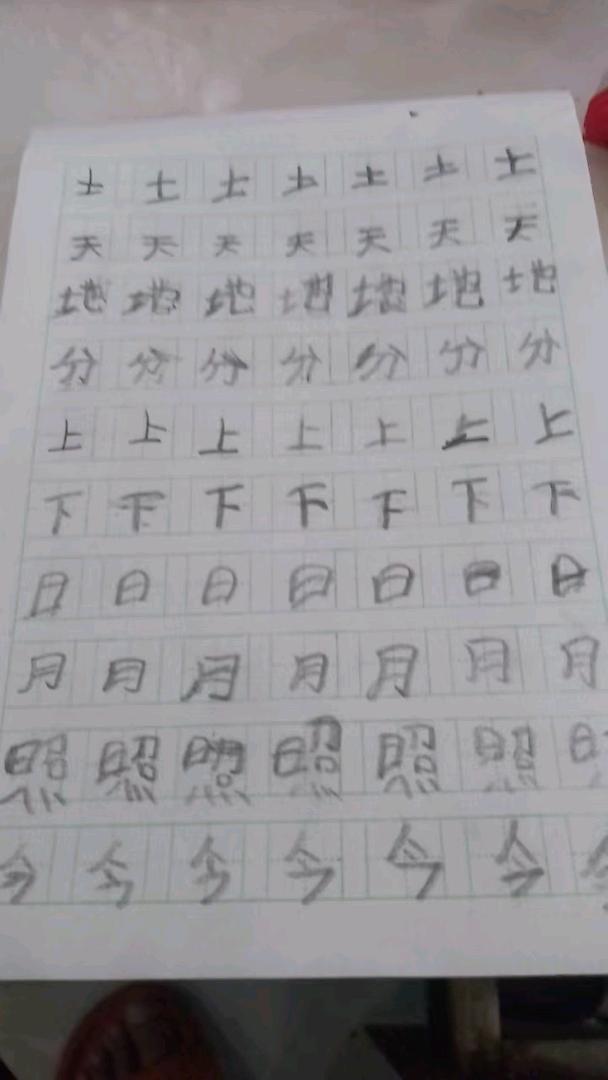 土 土 土 土 土 土 土
天 天 天 天 天 天 天
地 地 地 地 地 地 地
分 分 分 分 分 分 分
上 上 上 上 上 上 上
下 下 下 下 下 下 下
日 日 日 日 日 日 日
月 月 月 月 月 月 月
照 照 照 照 照 照
今 今 今 今 今 今